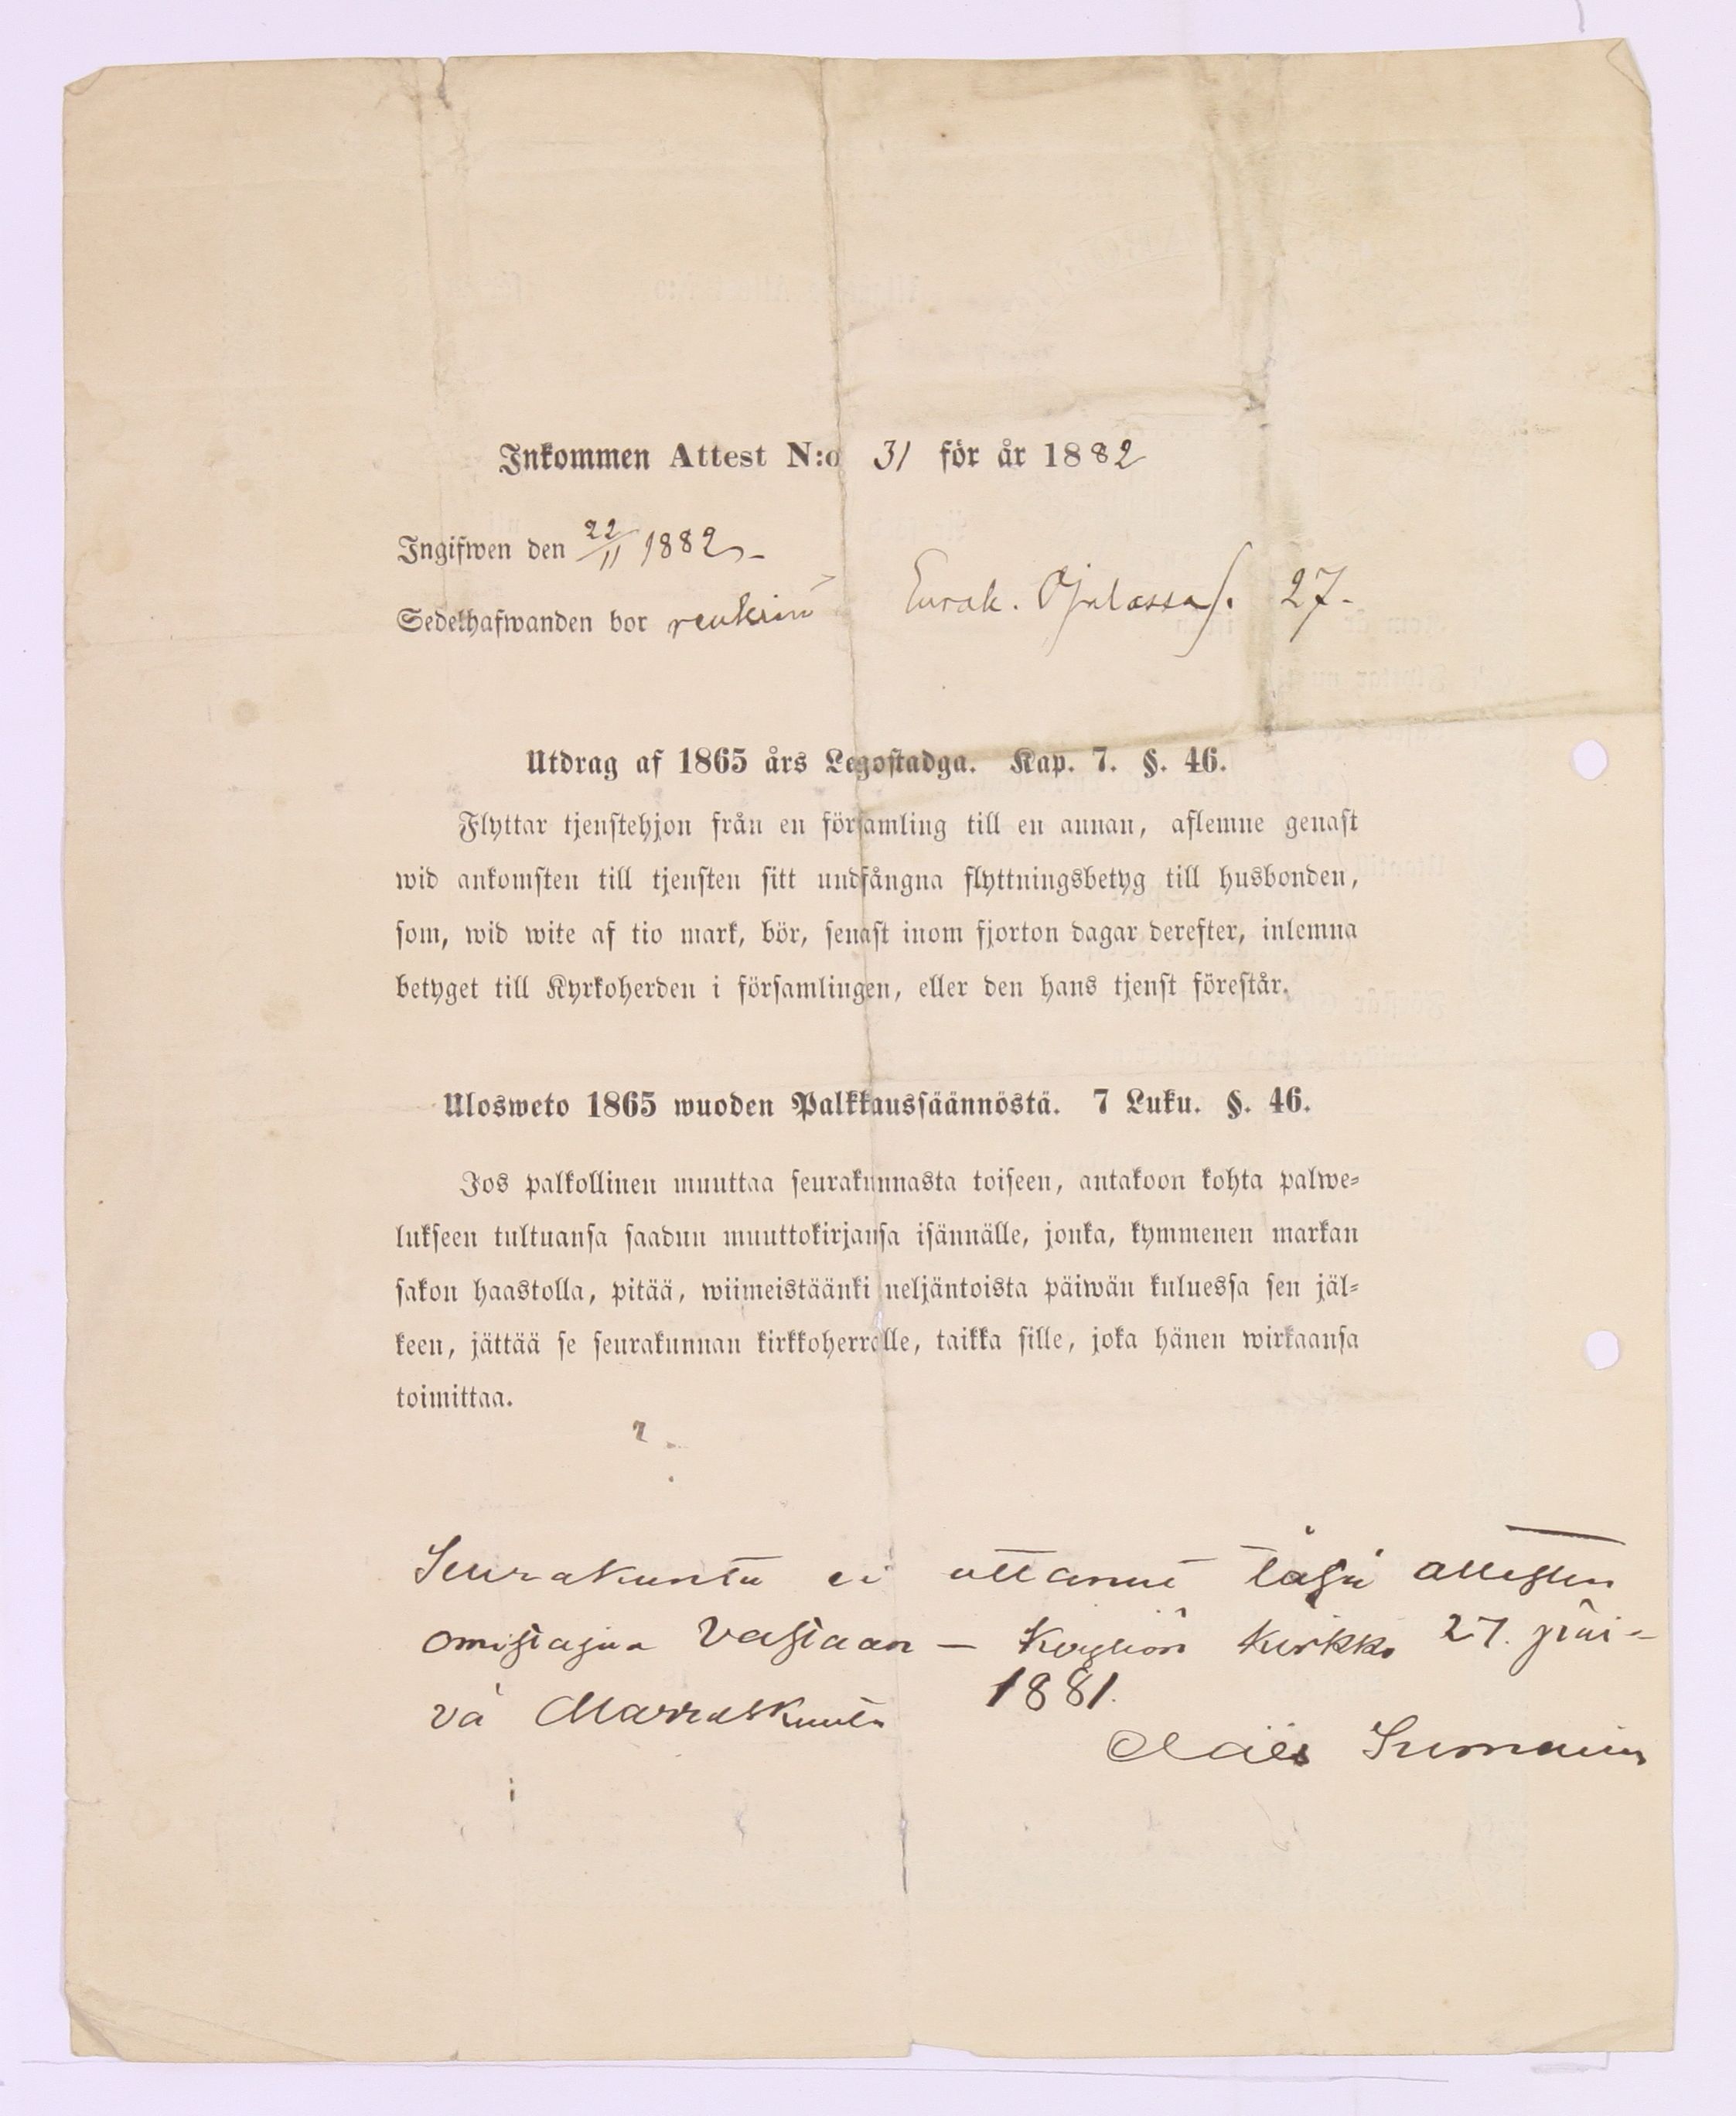 Inkommen Attest N:o 31 för år 1882
Ingifwen den 22/11 1882
Sedelhafwanden bor renkinä Eurak. Ojalassa s. 27.
Utdrag af 1865 års Legostadga. Kap. 7. §. 46.
Flyttar tjenstehjon från en församling till en annan, aflemne genast
wid ankomsten till tjensten sitt undfångna flyttningsbetyg till husbonden,
som, wid wite af tio mark, bör, senast inom fjorton dagar derefter, inlemna
betyget till Kyrkoherden i församlingen, eller den hans tjenst förestår.
Ulosweto 1865 wuoden Palkkaussäännöstä. 7 Luku. §. 46.
Jos palkollinen muuttaa seurakunnasta toiseen, antakoon kohta palwe-
lukseen tultuansa saadun muuttokirjansa isännälle, jonka, kymmenen markan
sakon haastolla, pitää, wiimeistäänki neljäntoista päiwän kuluessa sen jäl-
keen, jättää se seurakunnan kirkkoherralle, taikka sille, joka hänen wirkaansa
toimittaa.
Seurakunta ei ottanut täsä attestin
omistajaa vastaan — Köyliön kirkko 27. päi-
vä Marraskuuta 1881.